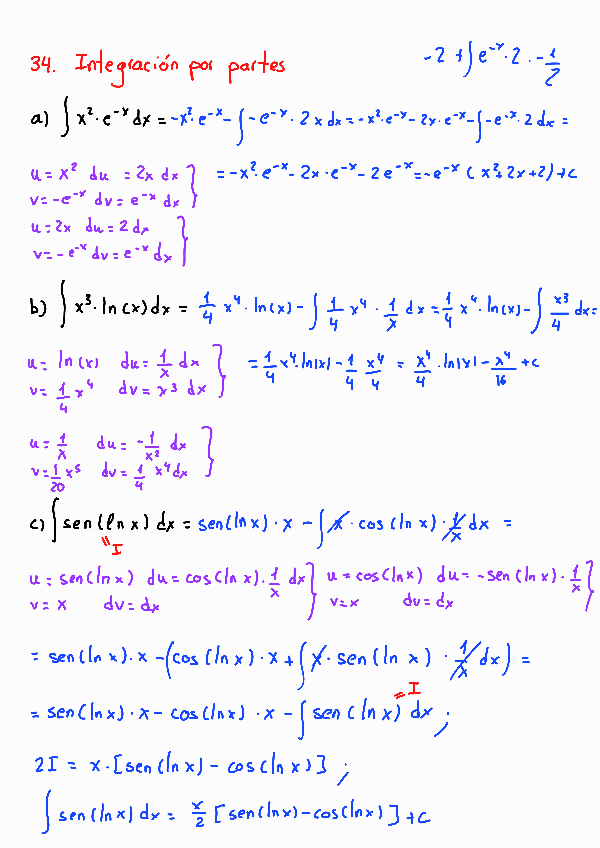 34. Integración por partes
-2 + ∫ e^-x · 2 · -1/2
a) ∫ x² · e^-x dx = -x² · e^-x - ∫ -e^-x · 2x dx = -x² · e^-x - 2x · e^-x - ∫ -e^-x · 2 dx =
u = x² du = 2x dx } = -x² · e^-x - 2x · e^-x - 2e^-x = -e^-x (x² + 2x + 2) + C
v = -e^-x dv = e^-x dx
u = 2x du = 2 dx }
v = -e^-x dv = e^-x dx
b) ∫ x³ · ln(x) dx = 1/4 x⁴ · ln(x) - ∫ 1/4 x⁴ · 1/x dx = 1/4 x⁴ · ln(x) - ∫ x³/4 dx =
u = ln(x) du = 1/x dx } = 1/4 x⁴ · ln|x| - 1/4 x⁴/4 = x⁴/4 · ln|x| - x⁴/16 + C
v = 1/4 x⁴ dv = x³ dx
u = 1/x du = -1/x² dx }
v = 1/20 x⁵ dv = 1/4 x⁴ dx
c) ∫ sen(ln x) dx = sen(ln x) · x - ∫ x · cos(ln x) · 1/x dx =
= I
u = sen(ln x) du = cos(ln x) · 1/x dx } u = cos(ln x) du = -sen(ln x) · 1/x }
v = x dv = dx v = x dv = dx
= sen(ln x) · x - (cos(ln x) · x + ∫ x · sen(ln x) · 1/x dx) =
= I
= sen(ln x) · x - cos(ln x) · x - ∫ sen(ln x) dx ;
2I = x · [sen(ln x) - cos(ln x)] ;
∫ sen(ln x) dx = x/2 [sen(ln x) - cos(ln x)] + C